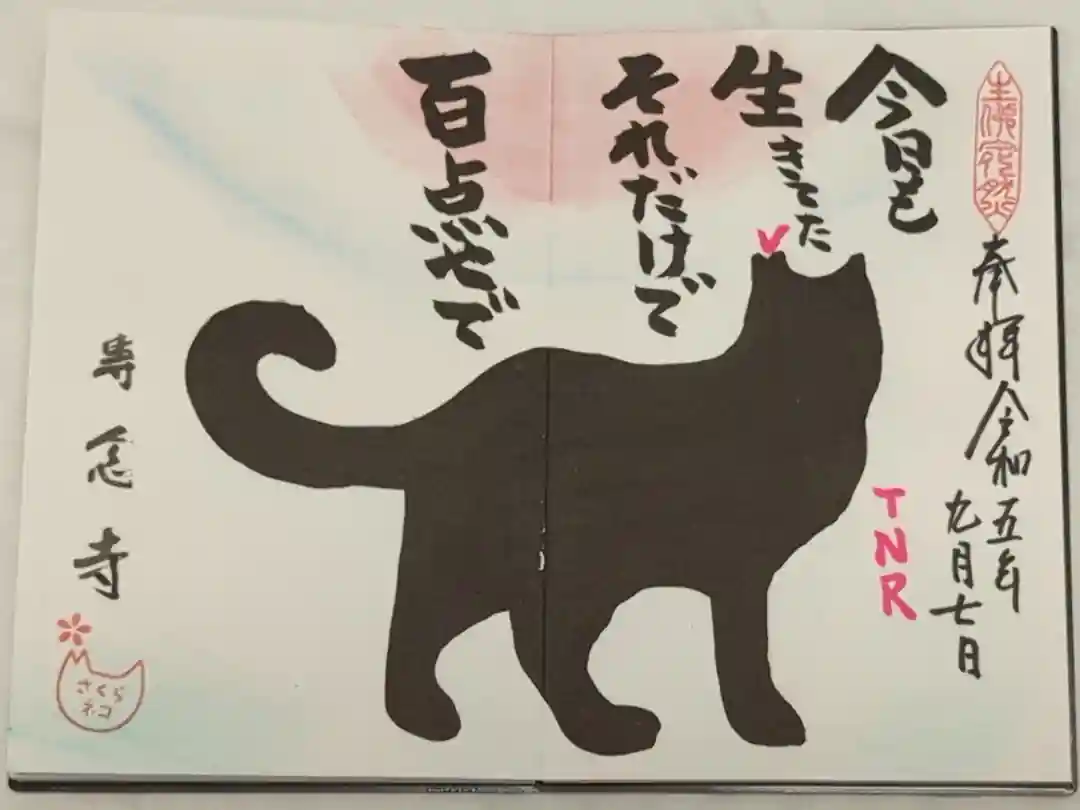 奉拝 令和五年
九月七日
TNR
今日も
生きてた
それだけで
百点やで
専念寺
さくら
ネコ